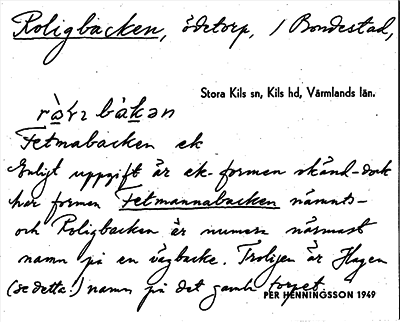 Roligbacken, ödetorp, i Bondestad,
Stora Kils sn, Kils hd, Värmlands län.
bàkən
Fetmabacken ek
Enligt uppgift är ek-formen okänd - dock
har formen Fetmannabacken nämnts -
och Roligbacken är numera närmast
namn på en vägbacke. Troligen är Hagen
(se detta!) namn på det gamla torpet.
PER HENNINGSSON 1949